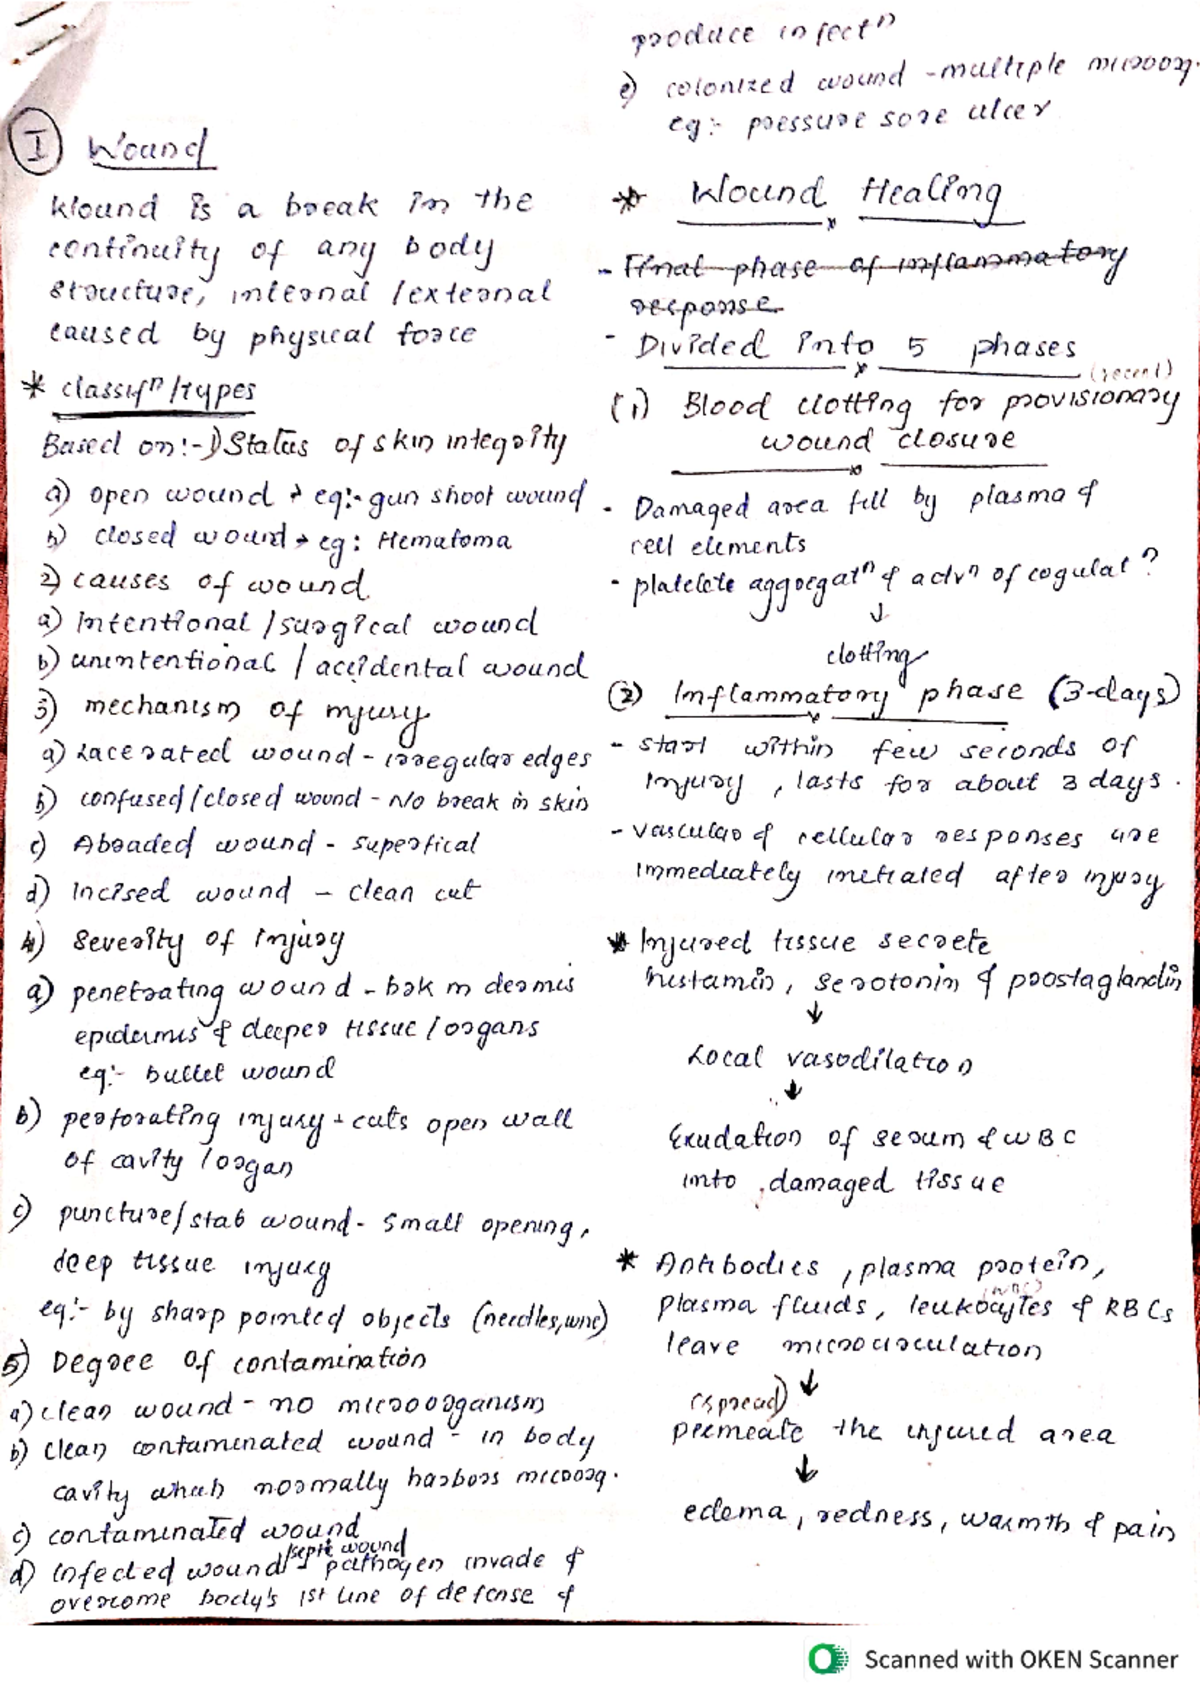 I Wound
Wound is a break in the
continuity of any body
structure, internal /external
caused by physical force
* classifⁿ/types
Based on:-1) Status of skin integrity
a) open wound → eg:- gun shoot wound
b) closed wound → eg: Hematoma
2) causes of wound
a) Intentional /surgical wound
b) unintentional / accidental wound
3) mechanism of injury
a) Lacerated wound - irregular edges
b) confused/closed wound - No break in skin
c) Abraded wound - superfical
d) Incised wound - clean cut
4) Severity of Injury
a) penetrating wound - brk in dermis
epidermis & deeper tissue / organs
eg:- bullet wound
b) perforating injury → cuts open wall
of cavity / organ
c) puncture/stab wound - small opening,
deep tissue injury
eg:- by sharp pointed objects (needles, wire)
5) Degree of contamination
a) clean wound - no microorganism
b) clean contaminated wound - in body
cavity which normally harbors microorg.
c) contaminated wound
d) infected wound /septic wound - pathogen invade &
overcome body's 1st line of defense &
produce infectⁿ
e) colonized wound - multiple microorg.
eg:- pressure sore ulcer
* Wound Healing
- Final phase of inflammatory
response
- Divided into 5 phases
(recent)
(1) Blood clotting for provisionary
wound closure
- Damaged area fill by plasma &
cell elements
- platelete aggregatⁿ & actvⁿ of cogulatⁿ
↓
clotting
(2) Inflammatory phase (3-days)
- start within few seconds of
injury, lasts for about 3 days.
- vascular & cellular responses are
immediately initiated after injury
* Injured tissue secrete
histamin, serotonin & prostaglandin
↓
Local vasodilation
↓
Exudation of serum & WBC
into damaged tissue
* Antibodies, plasma protein,
(WBC)
plasma fluids, leukocytes & RBCs
leave microcirculation
(spread) ↓
permeate the injured area
↓
edema, redness, warmth & pain
Scanned with OKEN Scanner